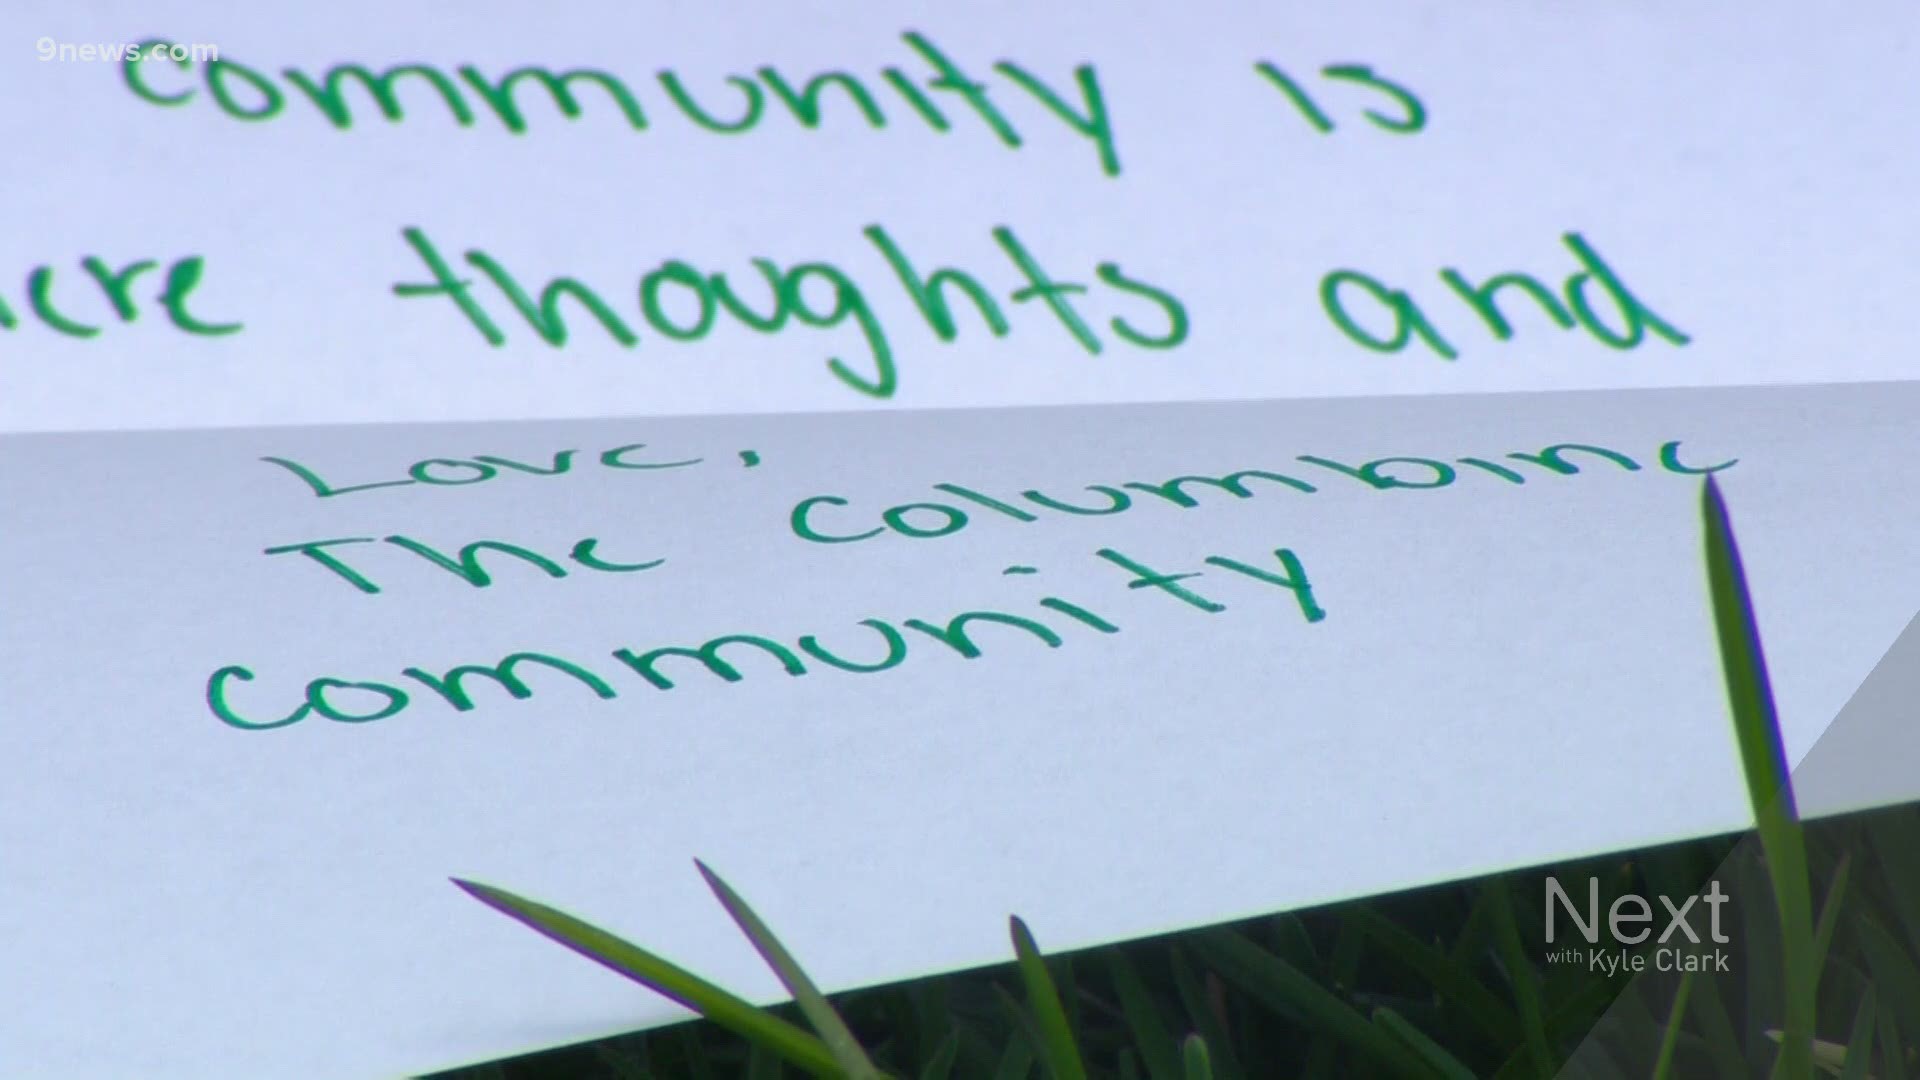 9news.com
community is
thoughts and
Love,
The Columbine
community
Next
with Kyle Clark